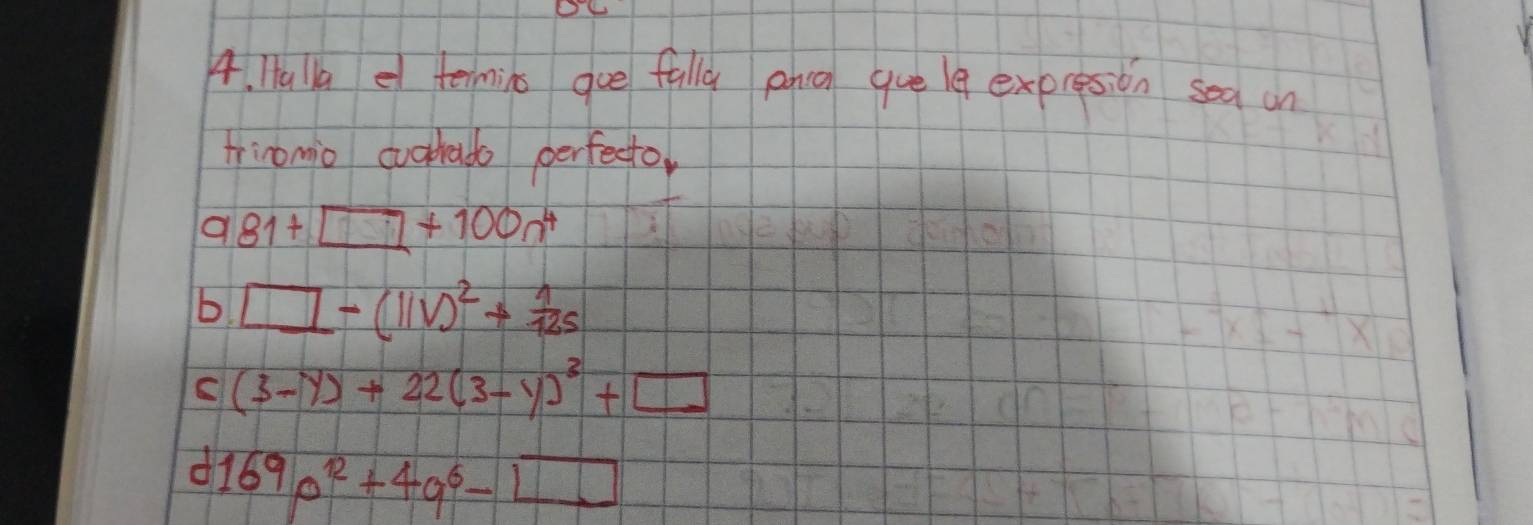 4. Halla el termino que falla para que la expresión sea un
trinomio cuadrado perfecto.
a 81 + □ + 100n⁴
b. □ - (11v)² + 1/125
c (3-y) + 22(3-y)³ + □
d 169p¹² + 4q⁶ - □